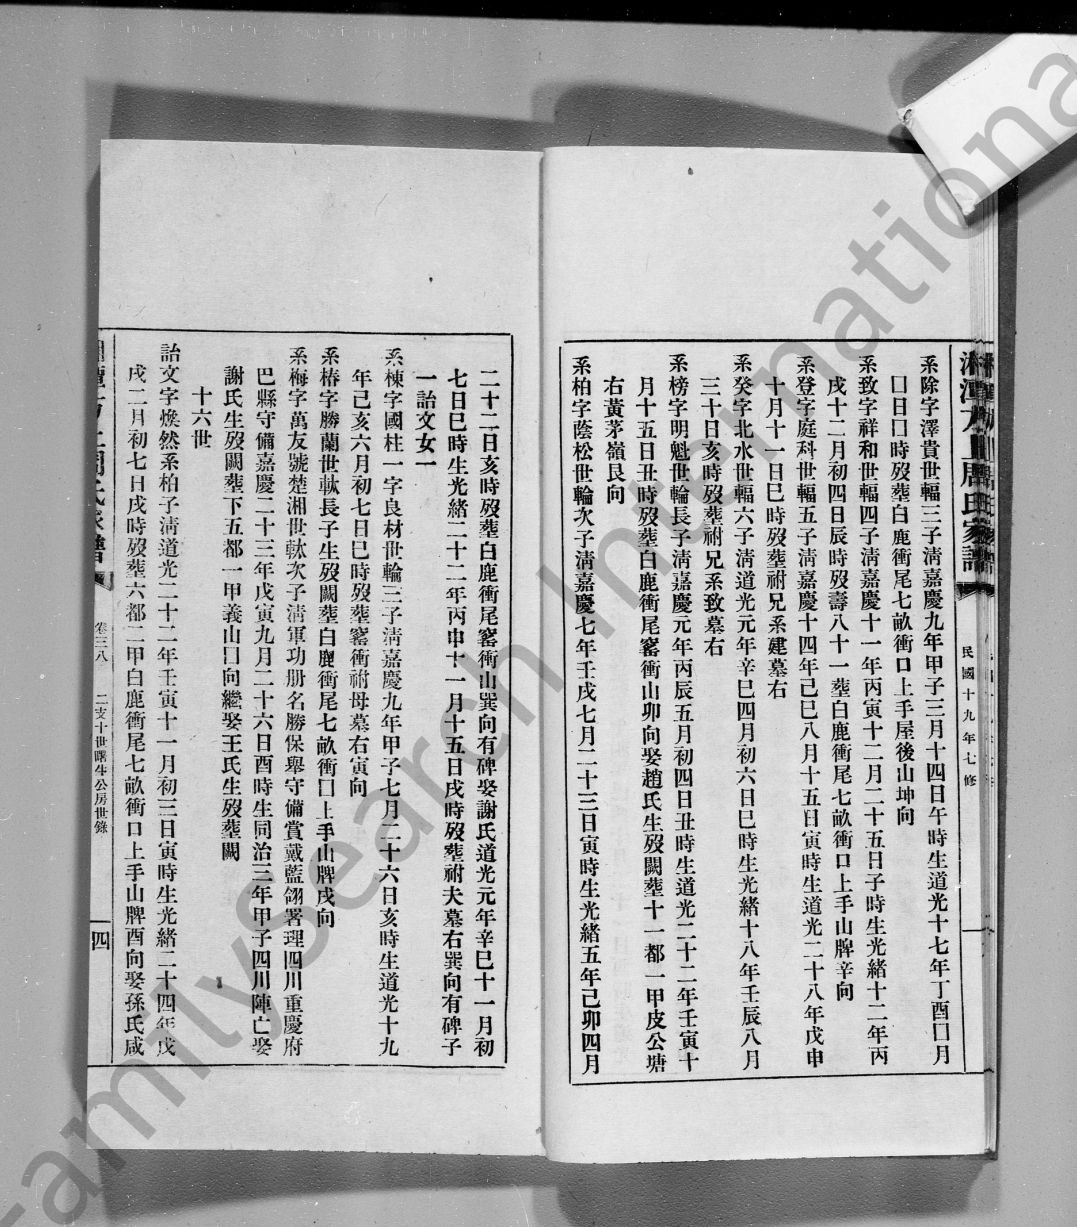 民國十九年七修
系除字澤貴世輻三子淸嘉慶九年甲子三月十四日午時生道光十七年丁酉囗月
囗日囗囗時歿葬白鹿衝尾七畝衝口上手屋後山坤向
系致字祥和世輻四子淸嘉慶十一年丙寅十二月二十五日子時生光緒十二年丙
戌十二月初四日辰時歿壽八十一葬白鹿衝尾七畝衝口上手山牌辛向
系登字庭科世輻五子淸嘉慶十四年己巳八月十五日寅時生道光二十八年戊申
十月十一日巳時歿葬祔兄系建墓右
系癸字北水世輻六子淸道光元年辛巳四月初六日巳時生光緒十八年壬辰八月
三十日亥時歿葬祔兄系致墓右
系榜字明魁世輪長子淸嘉慶元年丙辰五月初四日丑時生道光二十二年壬寅十
月十五日丑時歿葬白鹿衝尾窰衝山卯向娶趙氏生歿闕葬十一都一甲皮公塘
右黃茅嶺艮向
系柏字蔭松世輪次子淸嘉慶七年壬戌七月二十三日寅時生光緒五年己卯四月
二十二日亥時歿葬白鹿衝尾窰衝山巽向有碑娶謝氏道光元年辛巳十一月初
七日巳時生光緒二十二年丙申十一月十五日戌時歿葬祔夫墓右巽向有碑子
一詒文女一
系棟字國柱一字良材世輪三子淸嘉慶九年甲子七月二十六日亥時生道光十九
年己亥六月初七日巳時歿葬窰衝祔母墓右寅向
系椿字勝蘭世軚長子生歿闕葬白鹿衝尾七畝衝口上手山牌戌向
系梅字萬友號楚湘世軚次子淸軍功册名勝保舉守備賞戴藍翎署理四川重慶府
巴縣守備嘉慶二十三年戊寅九月二十六日酉時生同治三年甲子四川陣亡娶
謝氏生歿闕葬下五都一甲義山囗向繼娶王氏生歿葬闕
十六世
詒文字煥然系柏子淸道光二十二年壬寅十一月初三日寅時生光緒二十四年戊
戌二月初七日戌時歿葬六都二甲白鹿衝尾七畝衝口上手山牌酉向娶孫氏咸
卷三八 二支十世曙牛公房世錄 四